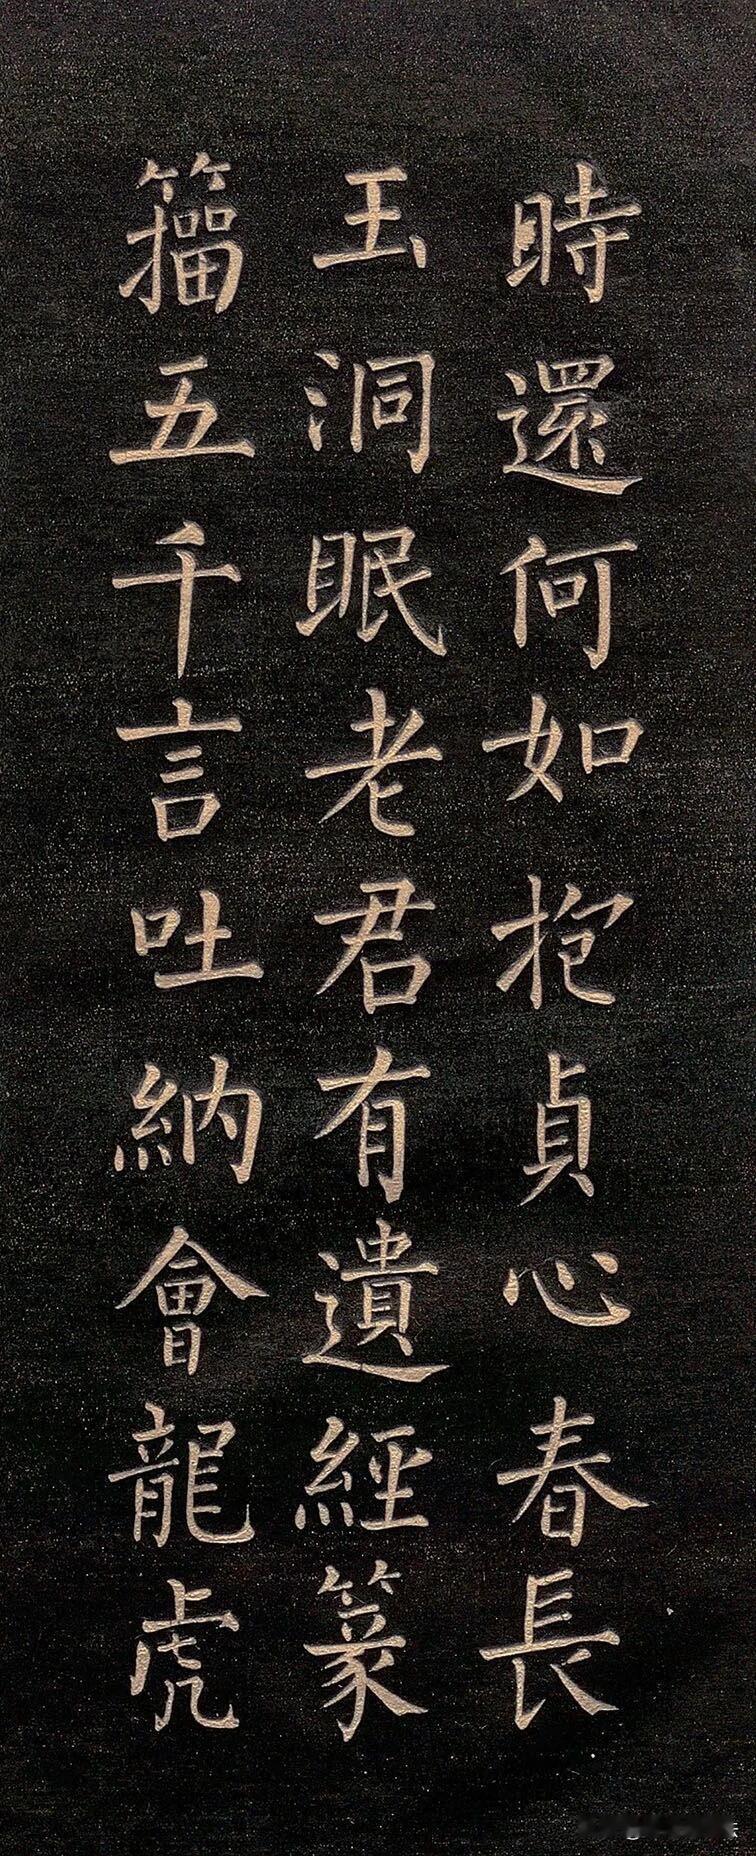 時還何如抱貞心春長
玉洞眠老君有遺經篆
籀五千言吐納會龍虎